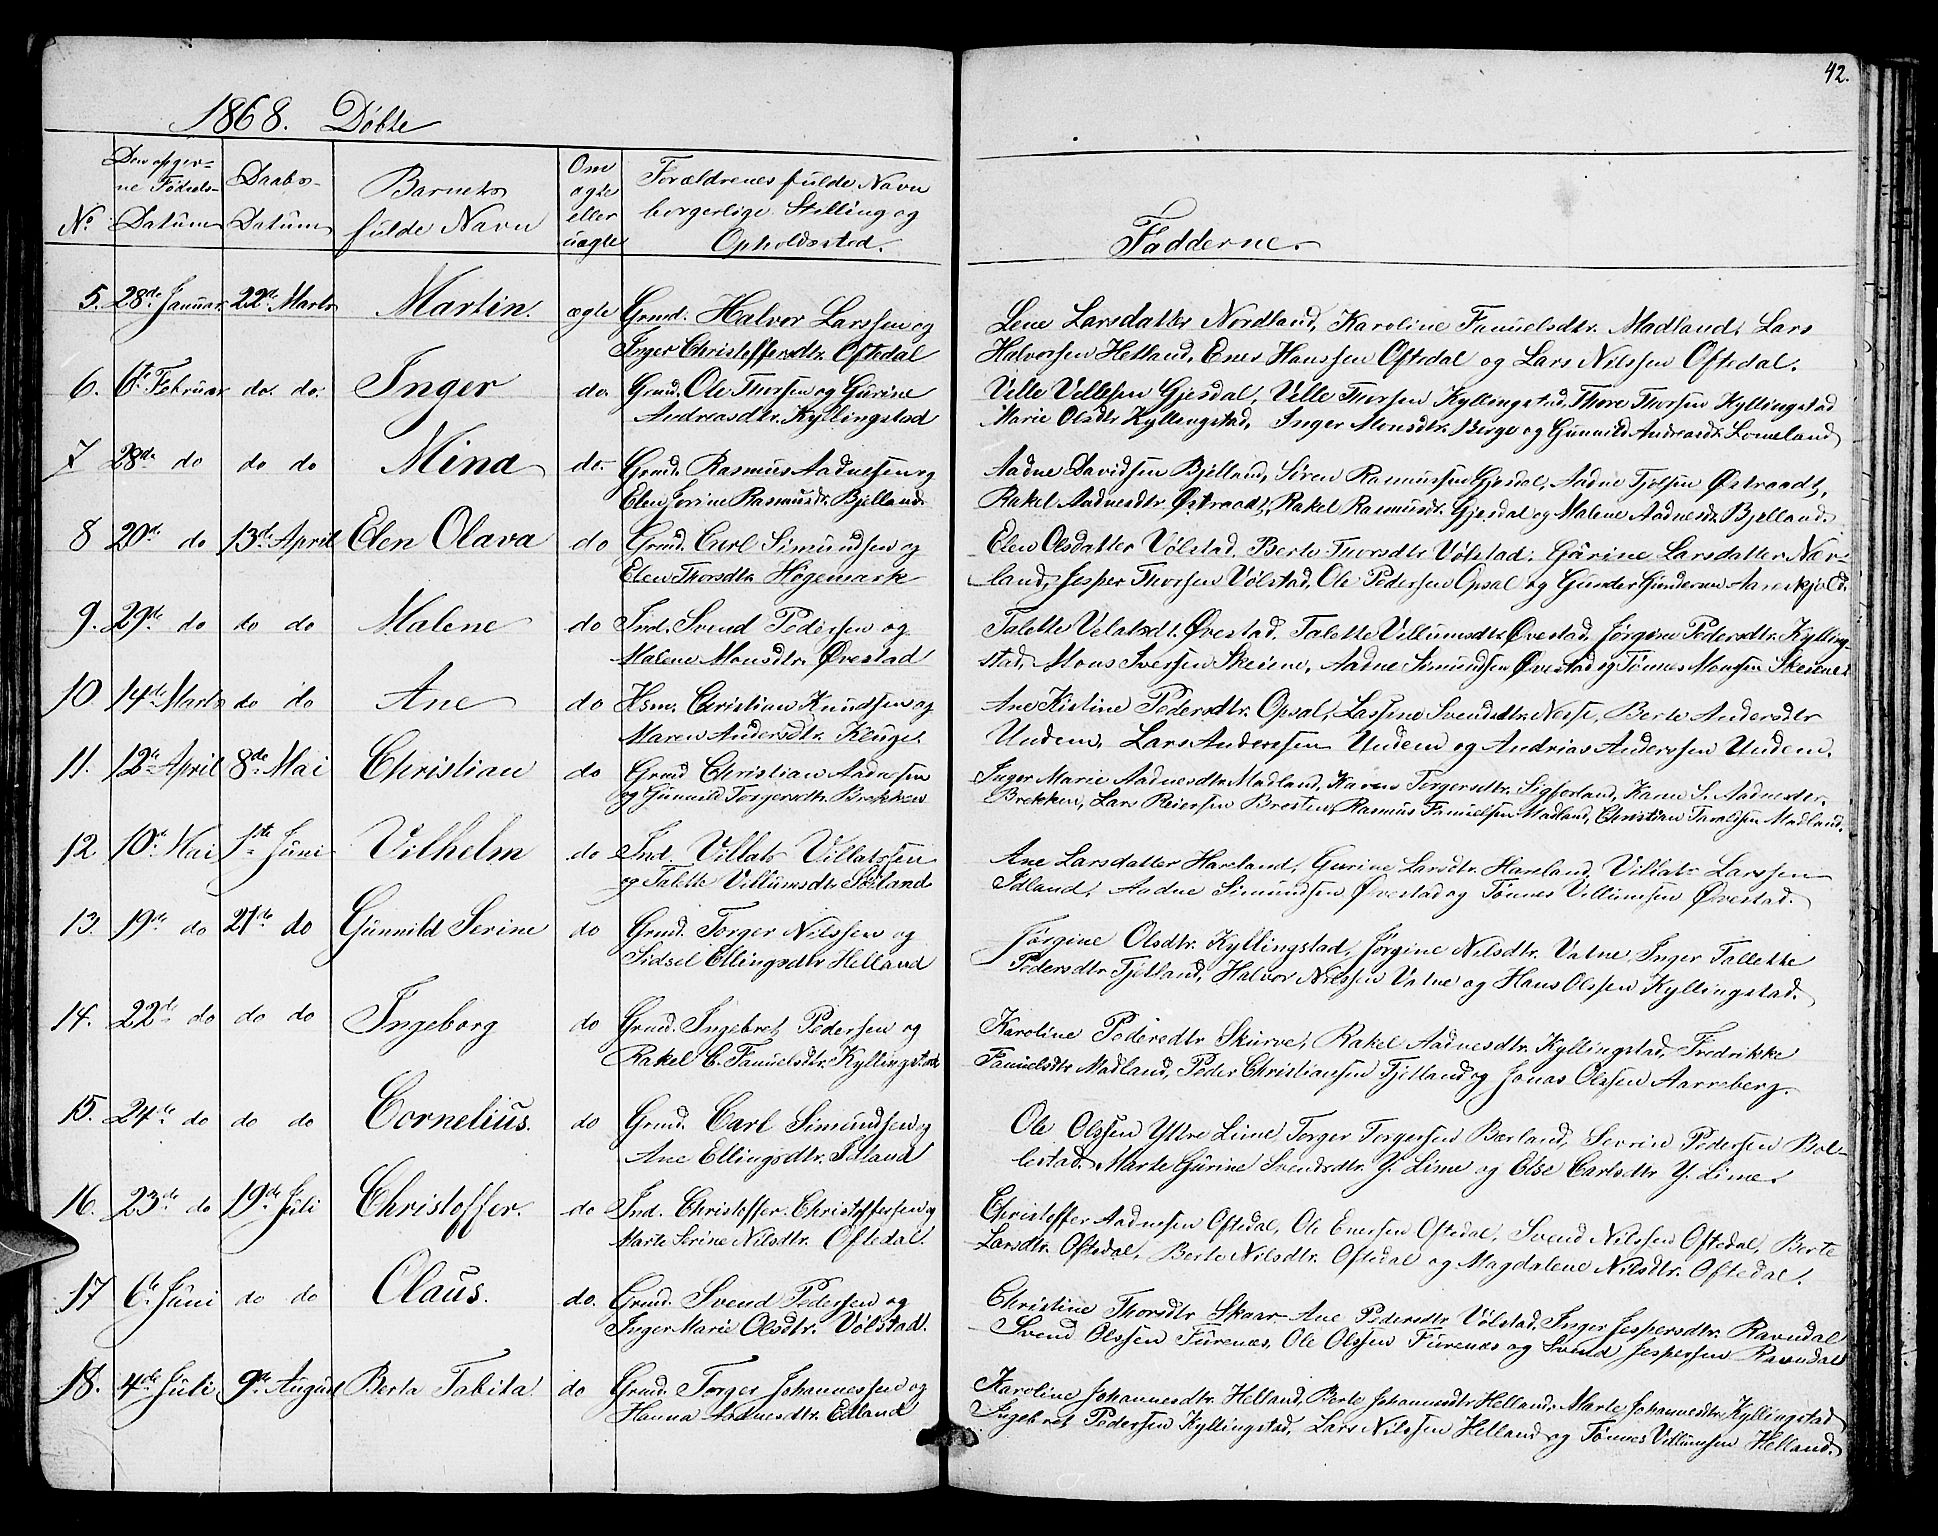 42.
1868. Døbte
No
Den opger-
ne Fødsels-
Datum
Daabs-
Datum
Barnets
fulde Navn
Om
ægte
eller
uægte
Forældrenes fulde Navn
borgerlige Stilling og
Opholdssted.
Fadderne.
5. 28de Januar 22de Marts Martin. ægte Grmd. Halvor Larssen og
Inger Christoffersdtr. Oftedal
Lene Larsdatter Nordland, Karoline Fanuelsdtr. Madland, Lars
Halvorsen Helland, Enes Hanssen Oftedal og Lars Nilssen Oftedal.
6. 6te Februar do. do. Inger do. Grmd. Ole Thorsen og Gurine
Andreasdtr. Kyllingstad
Ville Villesen Gjesdal, Ville Thorsen Kyllingstad, Thore Thorsen Kyllingstad
Marie Olsdtr Kyllingstad, Inger Monsdtr. Berge og Gunnild Andreasdtr. Lomeland
7 28de do do do Mina do. Grmd. Rasmus Aadnessen og
Elen Jorine Rasmusdtr. Bjelland
Aadne Davidsen Bjelland, Søren Rasmussen Gjesdal, Aadne Tjølsen Østraadt,
Rakel Aadnesdtr. Østraadt, Rakel Rasmusdtr. Gjesdal og Malene Aadnesdtr. Bjelland.
8 20de do 13de April Elen Olava do Grmd. Carl Simundsen og
Elen Thorsdtr. Høgemark
Elen Olsdatter Vølstad, Berte Thorsdtr Vølstad, Gurine Larsdatter Nær-
land, Jesper Thorsen Vølstad, Ole Pedersen Opsal og Gunder Gundersen Aareskjold.
9. 29de do do do Malene do Ind. Svend Pedersen og
Malene Monsdtr. Øvestad
Talette Velatsdt. Øvestad, Talette Villumsdtr. Øvestad, Jørgine Pedersdtr. Kylling-
stad, Mons Iversen Skeiene, Aadne Simundsen Øvestad og Tønnes Monsen Skeiene.
10 14de Marts do do Ane do Hsm. Christian Knudsen og
Maren Andersdtr. Kluge.
Ane Kistine Pedersdtr. Opsal, Lassine Svendsdtr. Nesse, Berte Andersdtr
Undem, Lars Anderssen Undem og Andrias Anderssen Undem.
11. 12te April 8de Mai Christian do Grmd Christian Aadnesen
og Gunnild Torgersdtr. Brekken
Inger Marie Aadnesdtr. Madland, Karen Torgersdtr. Sigfordland, Karen S. Aadnesdtr.
Brekken, Lars Reiersen Brosten, Rasmus Fanuelsen Madland, Christian Taraldsen Madland.
12 10de Mai 1ste Juni Vilhelm do Ind. Villats Villatssen
og Talette Villumsdtr. Søyland
Ane Larsdatter Haveland, Gurine Larsdtr. Haveland, Villats Larssen
Idland, Aadne Simundsen Øvestad og Tønnes Villumsen Øvestad.
13. 19de do 21de do Gunnild Serine do Grmd. Torger Nilssen og
Sidsel Ellingsdtr. Helland
Jørgine Olsdtr. Kyllingstad, Jørgine Nilsdtr. Vatne, Inger Tallette
Pedersdtr Tjetland, Halvor Nilssen Vatne og Hans Olssen Kyllingstad.
14. 22de do do do Ingeborg do Grmd. Ingebret Pedersen og
Rakel C. Fanuelsdtr. Kyllingstad
Karoline Pedersdtr Skurve, Rakel Aadnesdtr. Kyllingstad, Fredrikke
Fanuelsdtr Madland, Peder Christiansen Tjetland og Jonas Olssen Aarreberg.
15. 24de do do do Cornelius. do Grmd. Carl Simundsen og
Ane Ellingsdtr.
Ole Olssen Yttre Lime, Torger Torgersen Bærland, Sevrin Pedersen Bol-
lestad, Marte Gurine Svendsdtr. Y. Lime og Else Carlsdtr Y. Lime.
16. 23de do 19de Juli Christoffer. do Ind. Christoffer Christoffersen og
Marte Serine Nilsdtr. Oftedal
Christoffer Aadnesen Oftedal, Ole Enersen Oftedal, Svend Nilssen Oftedal, Berte
Larsdtr. Oftedal, Berte Nilsdtr. Oftedal og Magdalene Nilsdtr. Oftedal.
17 6te Juni do do Claus. do. Grmd. Svend Pedersen og
Inger Marie Olsdtr. Vølstad.
Christine Thorsdtr Skaar Ane Pedersdtr. Vølstad, Inger Jespersdtr. Ravndal
Svend Olssen Furenæs, Ole Olssen Furenæs og Svend Jespersen Ravndal
18. 4de Juli 9de August Berta Tabita do Grmd. Torger Johannessen og
Hanna Aadnesdtr. Edland
Karoline Johannesdtr. Helland, Berte Johannesdtr Helland, Marte Johannesdtr. Kyllingstad
Ingebret Pedersen Kyllingstad, Lars Nilssen Helland og Tønnes Villumsen Helland.